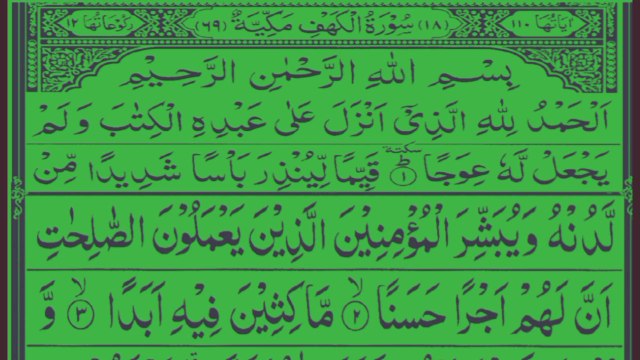 اٰيَاتُهَا ١١٠ (١٨) سُوْرَةُ الْكَهْفِ مَكِّيَّةٌ (٦٩) رُكُوْعَاتُهَا ١٢
بِسْمِ اللهِ الرَّحْمٰنِ الرَّحِيْمِ
اَلْحَمْدُ لِلّٰهِ الَّذِيْٓ اَنْزَلَ عَلٰى عَبْدِهِ الْكِتٰبَ وَلَمْ
يَجْعَلْ لَّهٗ عِوَجًا ؕ سكتة ١ قَيِّمًا لِّيُنْذِرَ بَاْسًا شَدِيْدًا مِّنْ
لَّدُنْهُ وَيُبَشِّرَ الْمُؤْمِنِيْنَ الَّذِيْنَ يَعْمَلُوْنَ الصّٰلِحٰتِ
اَنَّ لَهُمْ اَجْرًا حَسَنًا ۙ ٢ مَّاكِثِيْنَ فِيْهِ اَبَدًا ۙ ٣ وَّ